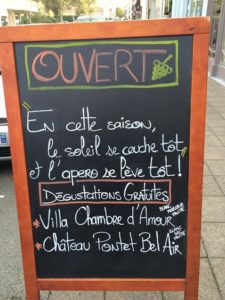 OUVERT
"En cette saison,
le soleil se cauche tôt
et l'apero se lève tôt!
DÉGUSTATIONS GRATUITES
* Villa Chambre d'Amour BLANC
* Château Pontet Bel Air BLANC